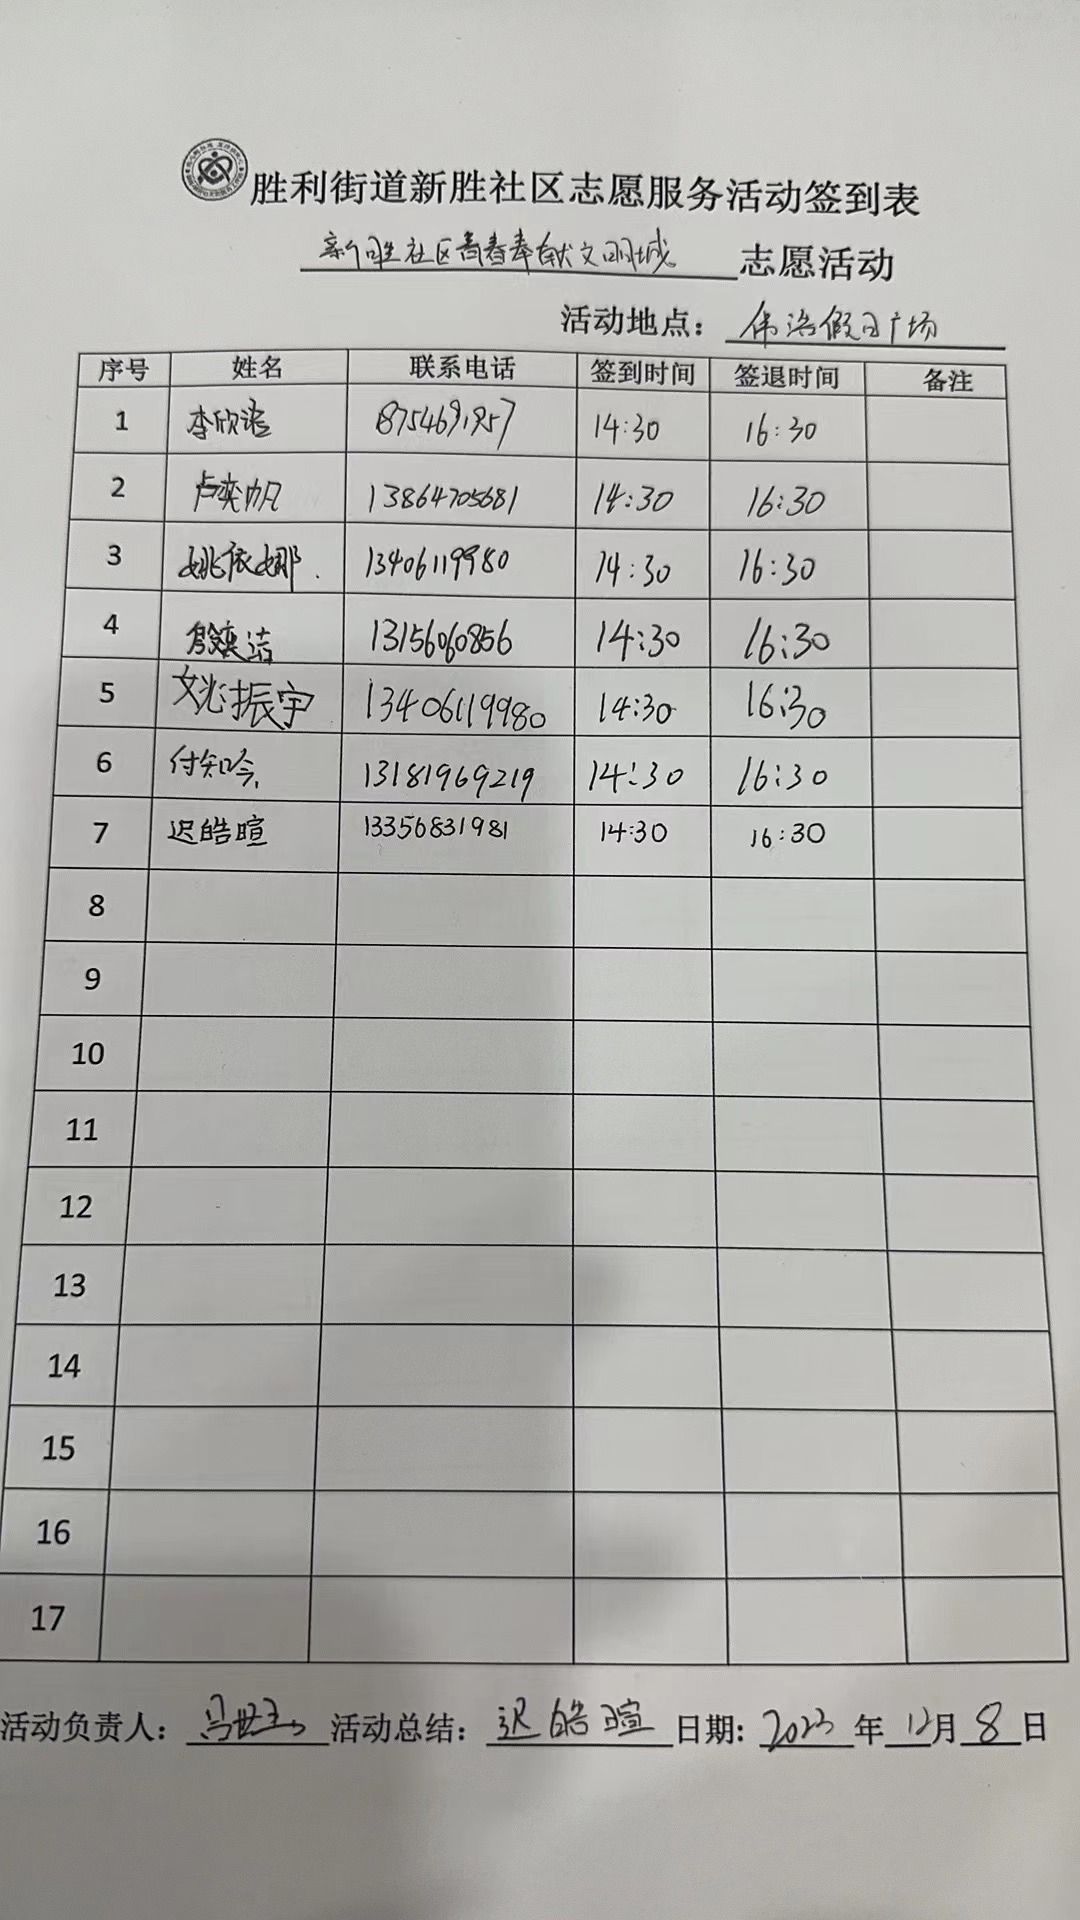 胜利街道新胜社区志愿服务活动签到表
新胜社区青春奉献文明城 志愿活动
活动地点：伟浩假日广场
序号 姓名 联系电话 签到时间 签退时间 备注
1 李欣 18754691957 14:30 16:30
2 卢奕帆 13864705681 14:30 16:30
3 姚依娜. 13406119980 14:30 16:30
4 殷奕洁 13156060856 14:30 16:30
5 姚振宇 13406119980 14:30 16:30
6 付知吟 13181969219 14:30 16:30
7 迟皓暄 13356831981 14:30 16:30
8
9
10
11
12
13
14
15
16
17
活动负责人：冯世 活动总结：迟皓暄 日期：2023年12月8日